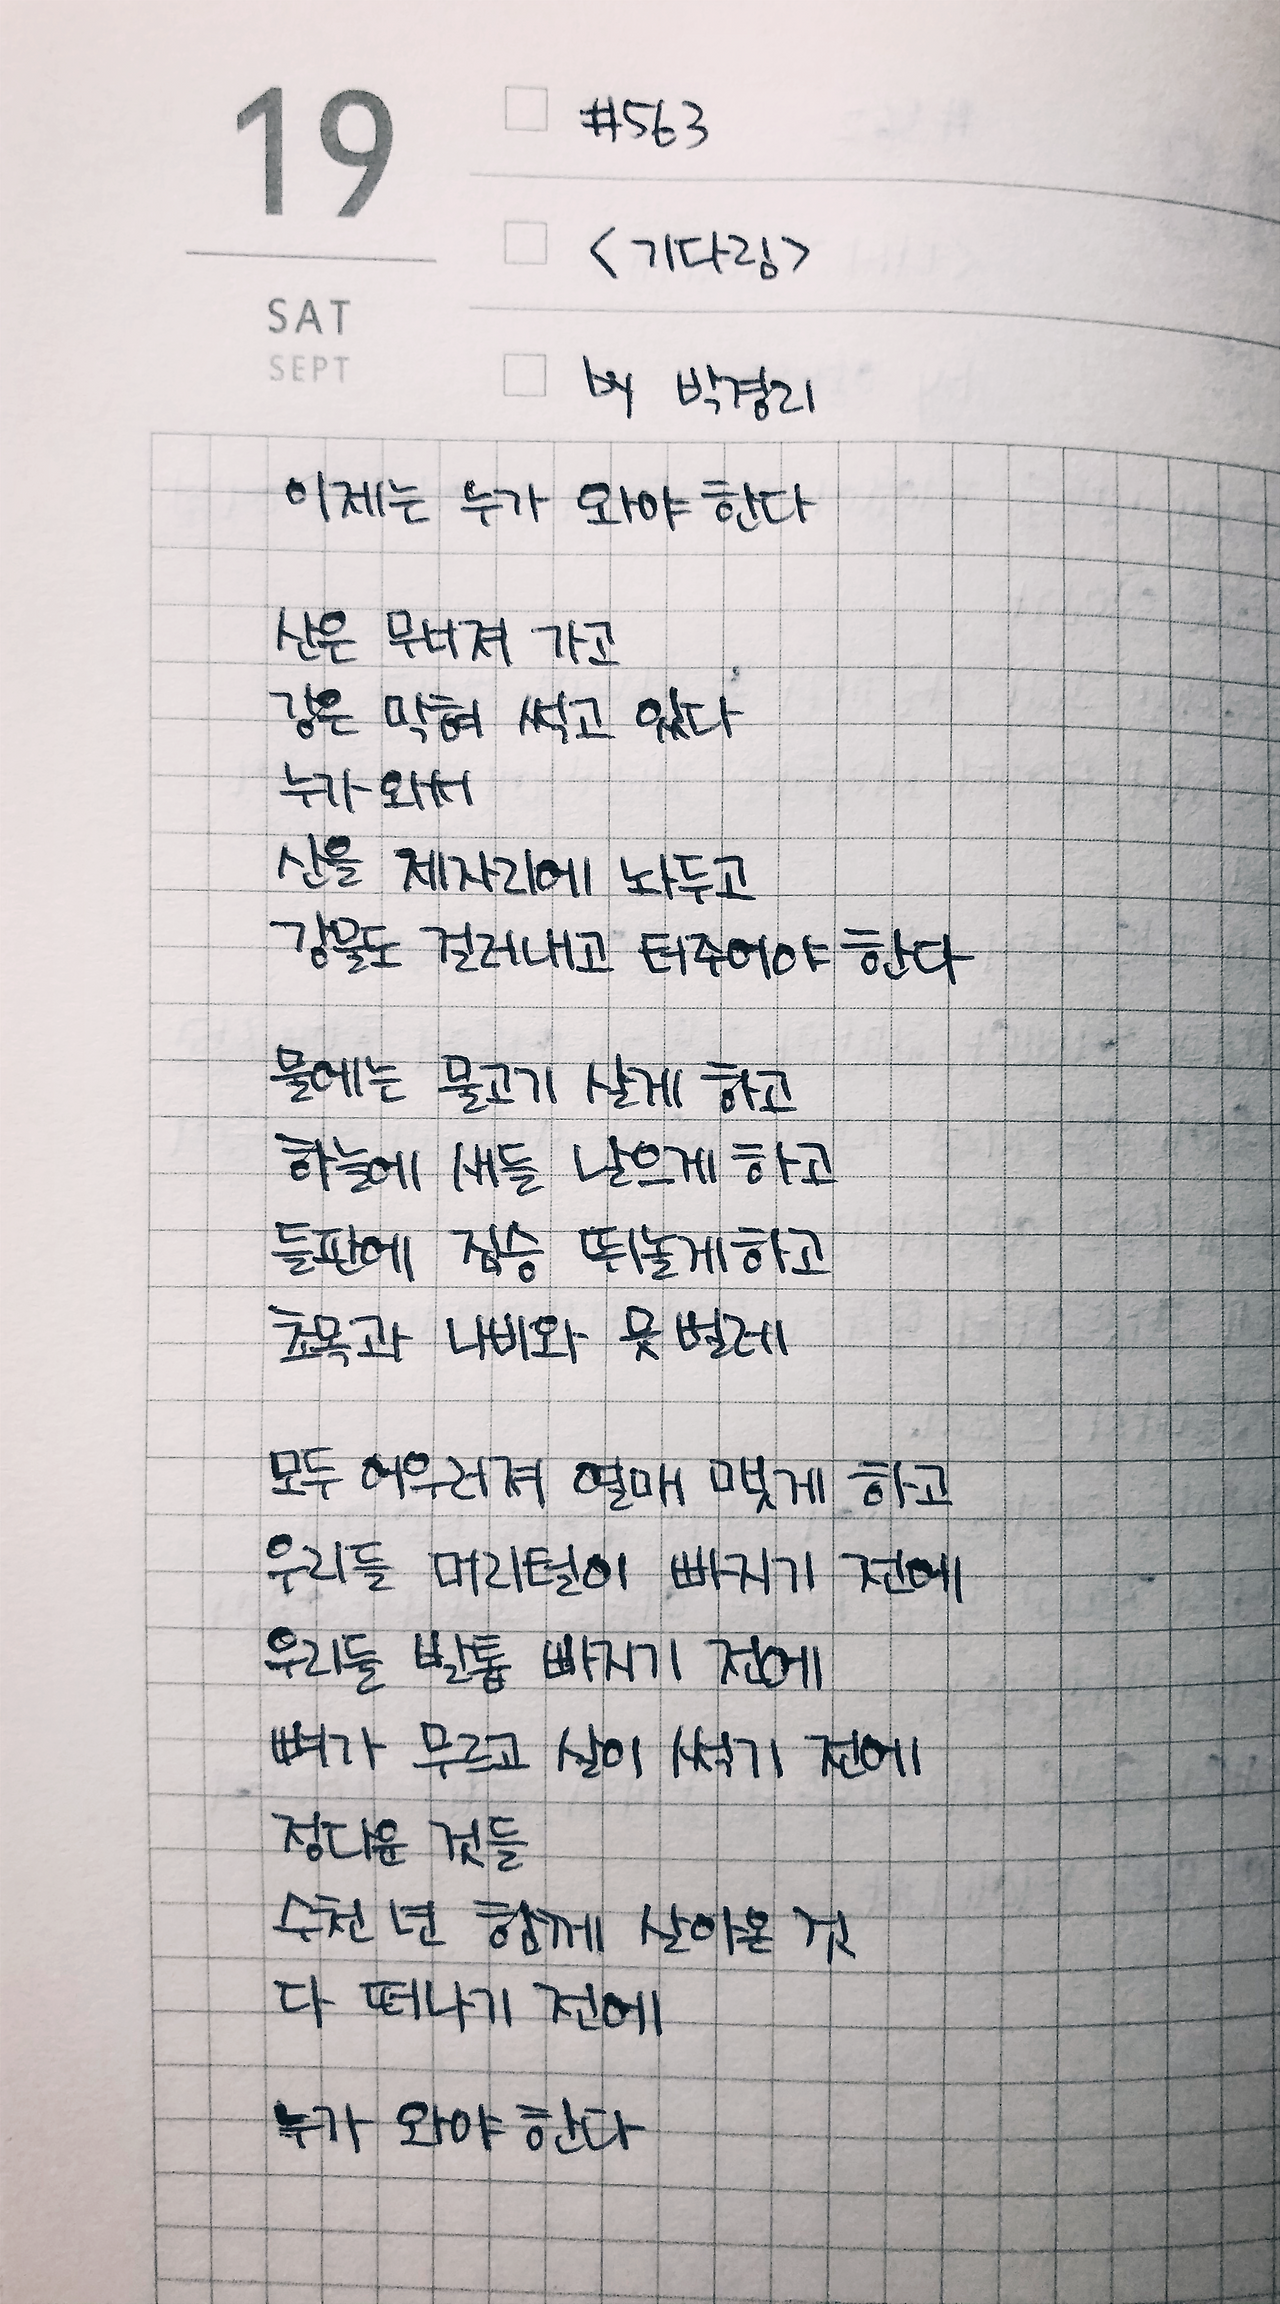 19
SAT
SEPT
#563
<기다림>
by 박경리
이제는 누가 와야 한다
산은 무너져 가고
강은 막혀 썩고 있다
누가 와서
산을 제자리에 놔두고
강물도 걸러내고 터주어야 한다
물에는 물고기 살게 하고
하늘에 새들 날으게 하고
들판에 짐승 뛰놀게 하고
초목과 나비와 뭇 벌레
모두 어우러져 열매 맺게 하고
우리들 머리털이 빠지기 전에
우리들 발톱 빠지기 전에
뼈가 무르고 살이 썩기 전에
정다운 것들
수천 년 함께 살아온 것
다 떠나기 전에
누가 와야 한다